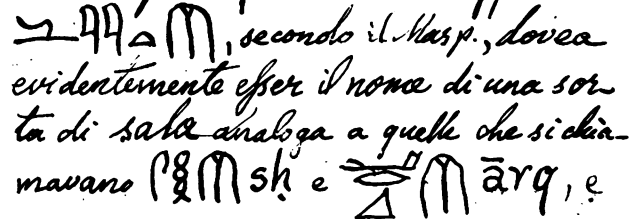 , secondo il Masp., dovea
evidentemente esser il nome di una sor-
ta di sala analoga a quelle che si chia-
mavano 𓋴𓎛𓉲 sḥ e 𓉲 ārq, e